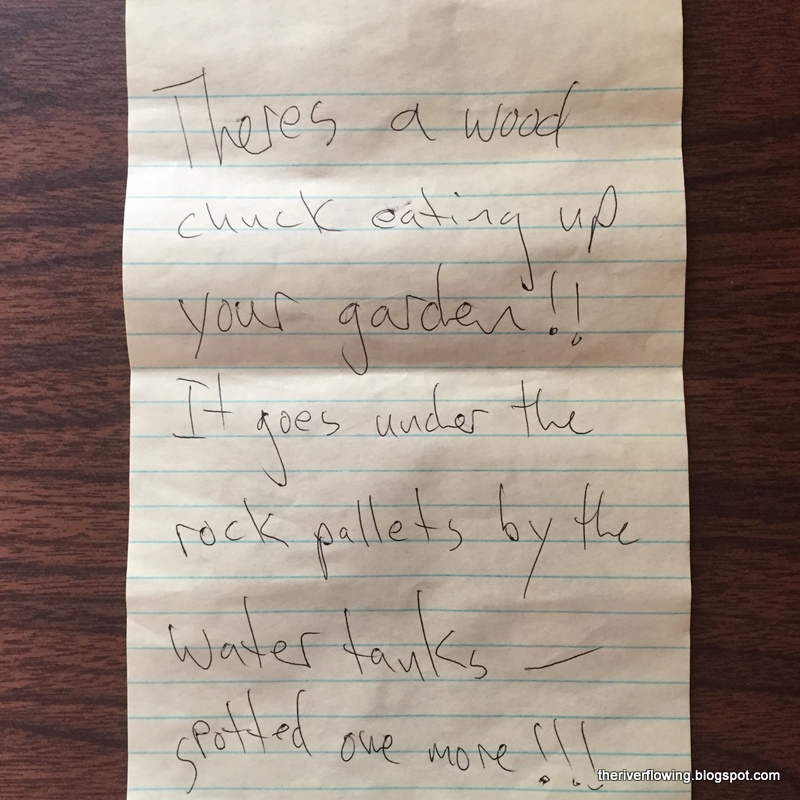 Theres a wood
chuck eating up
your garden!!
It goes under the
rock pallets by the
water tanks —
spotted one more!!!
theriverflowing.blogspot.com